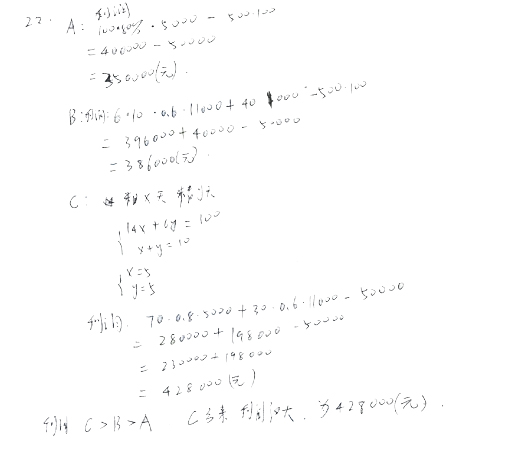 22. A: 利润 100·80% · 5000 - 500·100
= 400000 - 50000
= 350000(元).
B: 利润: 6·10 · 0.6 · 11000 + 40 · 1000 - 500·100
= 396000 + 40000 - 50000
= 386000(元).
C: 粗 x 天 精 y 天
{ 14x + 6y = 100
x + y = 10
{ x = 5
y = 5
利润: 70 · 0.8 · 5000 + 30 · 0.6 · 11000 - 50000
= 280000 + 198000 - 50000
= 230000 + 198000
= 428000(元)
利润 C > B > A C 利润最大, 为428000(元).